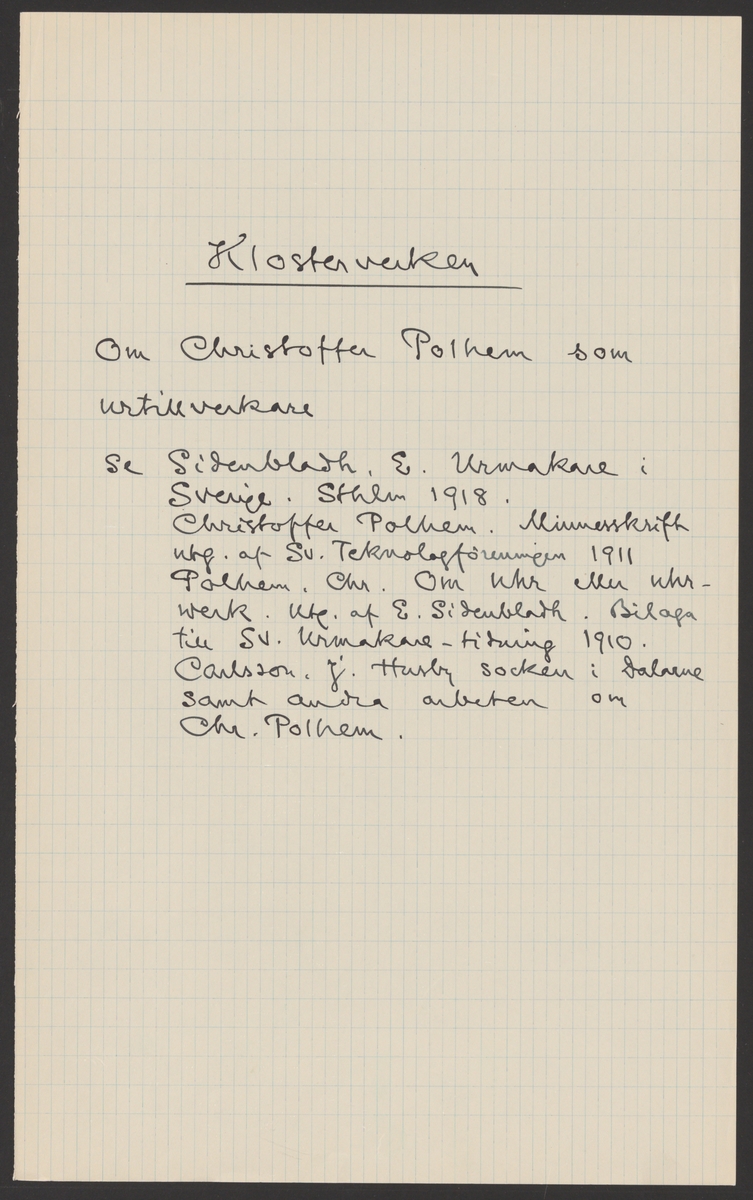 Klosterverken
Om Christoffer Polhem som
urtillverkare
se Sidenbladh, E. Urmakare i
Sverige. Sthlm 1918.
Christoffer Polhem. Minnesskrift
utg. af Sv. Teknologföreningen 1911
Polhem, Chr. Om Uhr eller uhr-
werk. Utg. af E. Sidenbladh. Bilaga
till Sv. Urmakare-tidning 1910.
Carlsson, J. Husby socken i Dalarne
samt andra arbeten om
Chr. Polhem.